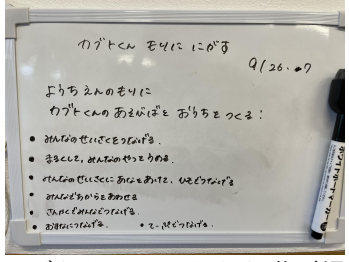 カブトくん もりに にがす
9/26.
ようちえんのもりに
カブトくんの あそびばと おうちを つくる:
• みんなのせいさくをつなげる.
• まるくして、みんなのやつとうめる.
• みんなのせいさくにあなをあけて、ひもでつなげる
• みんなでちからをあわせる
• さんかくでみんなでつなげる.
• おすなにつなげる. • てーぷでつなげる.
ホワイトボードマーカー